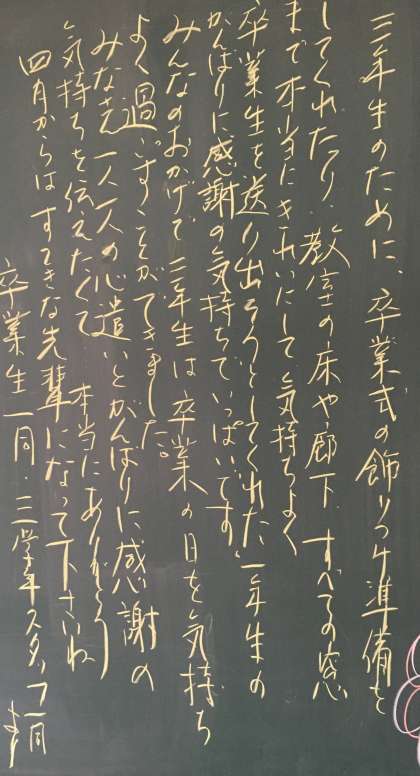 三年生のために、卒業式の飾りつけ準備を
してくれたり、教室の床や廊下、すべての窓
まで本当にきれいにして気持ちよく
卒業生を送り出そうとしてくれた一年生の
がんばりに感謝の気持ちでいっぱいです。
みんなのおかげで三年生は卒業の日を気持ち
よく過ごすことができました。
みなさん一人一人の心遣いとがんばりに感謝の
気持ちを伝えたくて 本当にありがとう
四月からはすてきな先輩になって下さいね
卒業生一同・三学年スタッフ一同
より